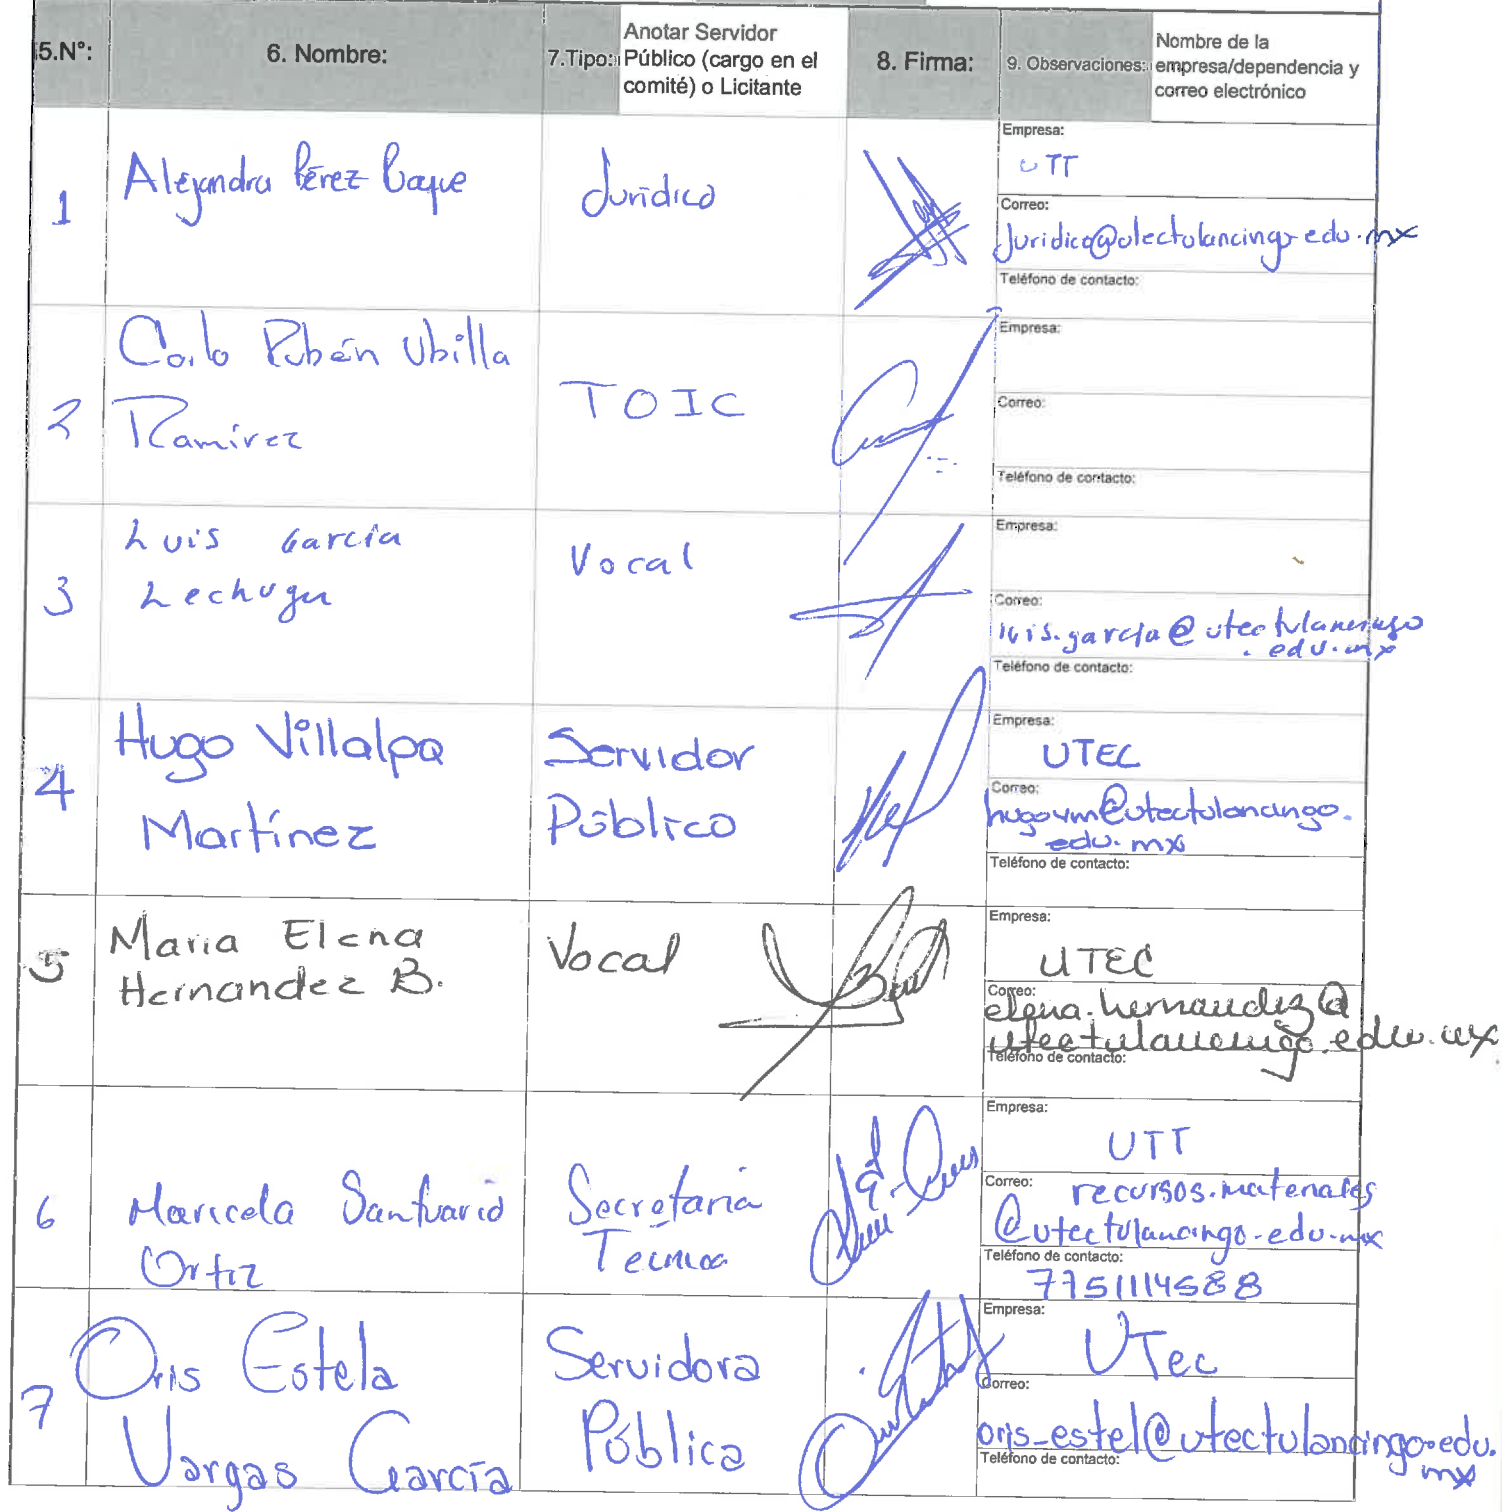 5.N°:
6. Nombre:
7.Tipo:
Anotar Servidor
Público (cargo en el
comité) o Licitante
8. Firma:
9. Observaciones:
Nombre de la
empresa/dependencia y
correo electrónico
1
Alejandra Pérez
Jurídico
Empresa:
UTT
Correo:
Juridico@utectulancingo.edu.mx
Teléfono de contacto:
2
Carlo Rubén Ubilla
Ramírez
TOIC
Empresa:
Correo:
Teléfono de contacto:
3
Luis García
Lechuga
Vocal
Empresa:
Correo:
luis.garcia@utectulancingo
.edu.mx
Teléfono de contacto:
4
Hugo Villalpa
Martínez
Servidor
Público
Empresa:
UTEC
Correo:
hugovm@utectulancingo.
edu.mx
Teléfono de contacto:
5
Maria Elena
Hernandez B.
Vocal
Empresa:
UTEC
Correo:
elena.hernandez@
utectulancingo.edu.mx
Teléfono de contacto:
6
Maricela Santuario
Ortiz
Secretaria
Tecnica
Empresa:
UTT
Correo:
recursos.materiales
@utectulancingo.edu.mx
Teléfono de contacto:
7751114588
7
Oris Estela
Vargas García
Servidora
Pública
Empresa:
UTec
Correo:
oris_estel@utectulancingo.edu.
mx
Teléfono de contacto: